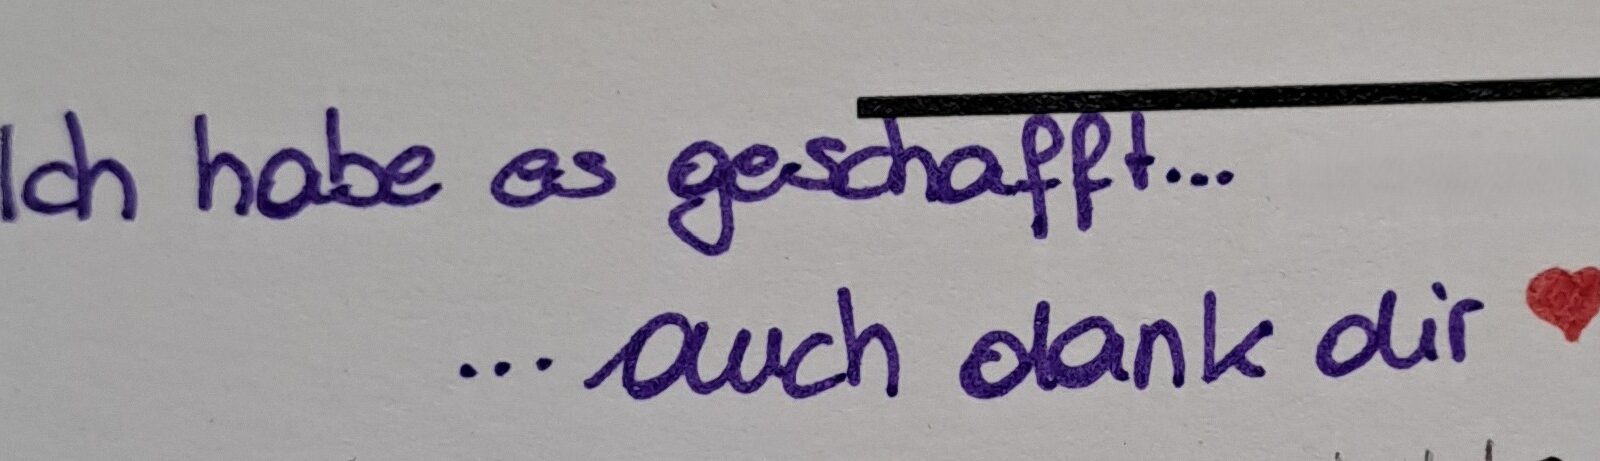 Ich habe es geschafft...
... auch dank dir ♥